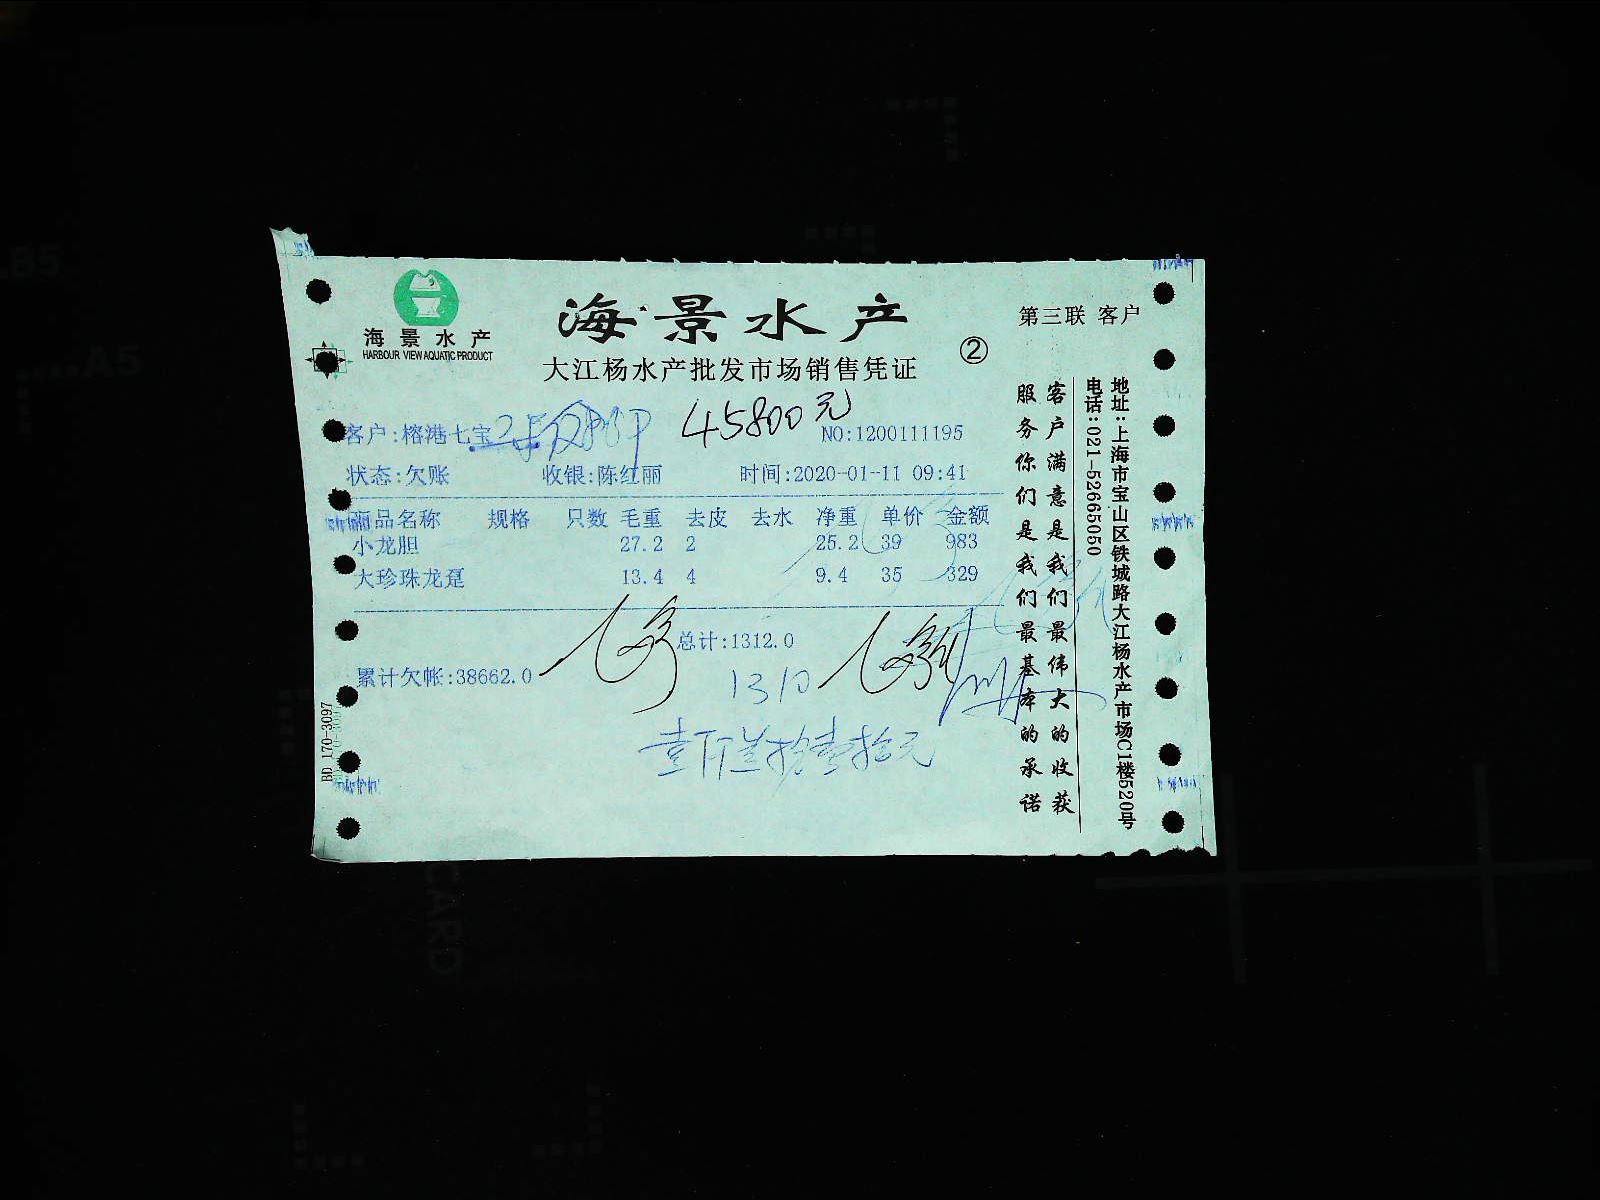 海景水产
HARBOUR VIEW AQUATIC PRODUCT
海景水产
大江杨水产批发市场销售凭证
②
第三联 客户
45800元
客户:榕港七宝
NO:1200111195
状态:欠账 收银:陈红丽 时间:2020-01-11 09:41
商品名称 规格 只数 毛重 去皮 去水 净重 单价 金额
小龙胆 27.2 2 25.2 39 983
大珍珠龙趸 13.4 4 9.4 35 329
总计:1312.0
累计欠帐:38662.0
1310
壹仟叁拾壹拾元
客户满意是我们最伟大的收获
服务你们是我们最基本的承诺
地址:上海市宝山区铁城路大江杨水产市场C1楼520号
电话:021-52665050
BD 170-3097
B5
A5
CARD